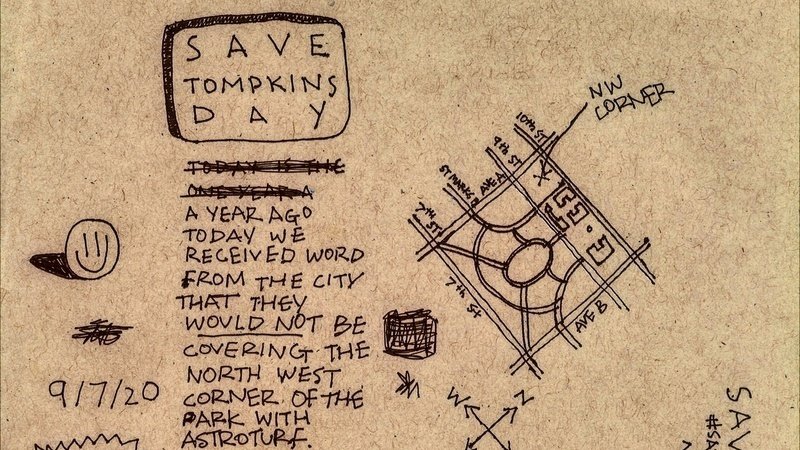 SAVE
TOMPKINS
DAY
TODAY IS THE
ONE YEAR A
A YEAR AGO
TODAY WE
RECEIVED WORD
FROM THE CITY
THAT THEY
WOULD NOT BE
COVERING THE
NORTH WEST
CORNER OF THE
PARK WITH
ASTROTURF.
9/7/20
NW
CORNER
10th ST
9th ST
AVE A
ST MARKS
7th ST
7th St
AVE B
W
N
SAV
#SA